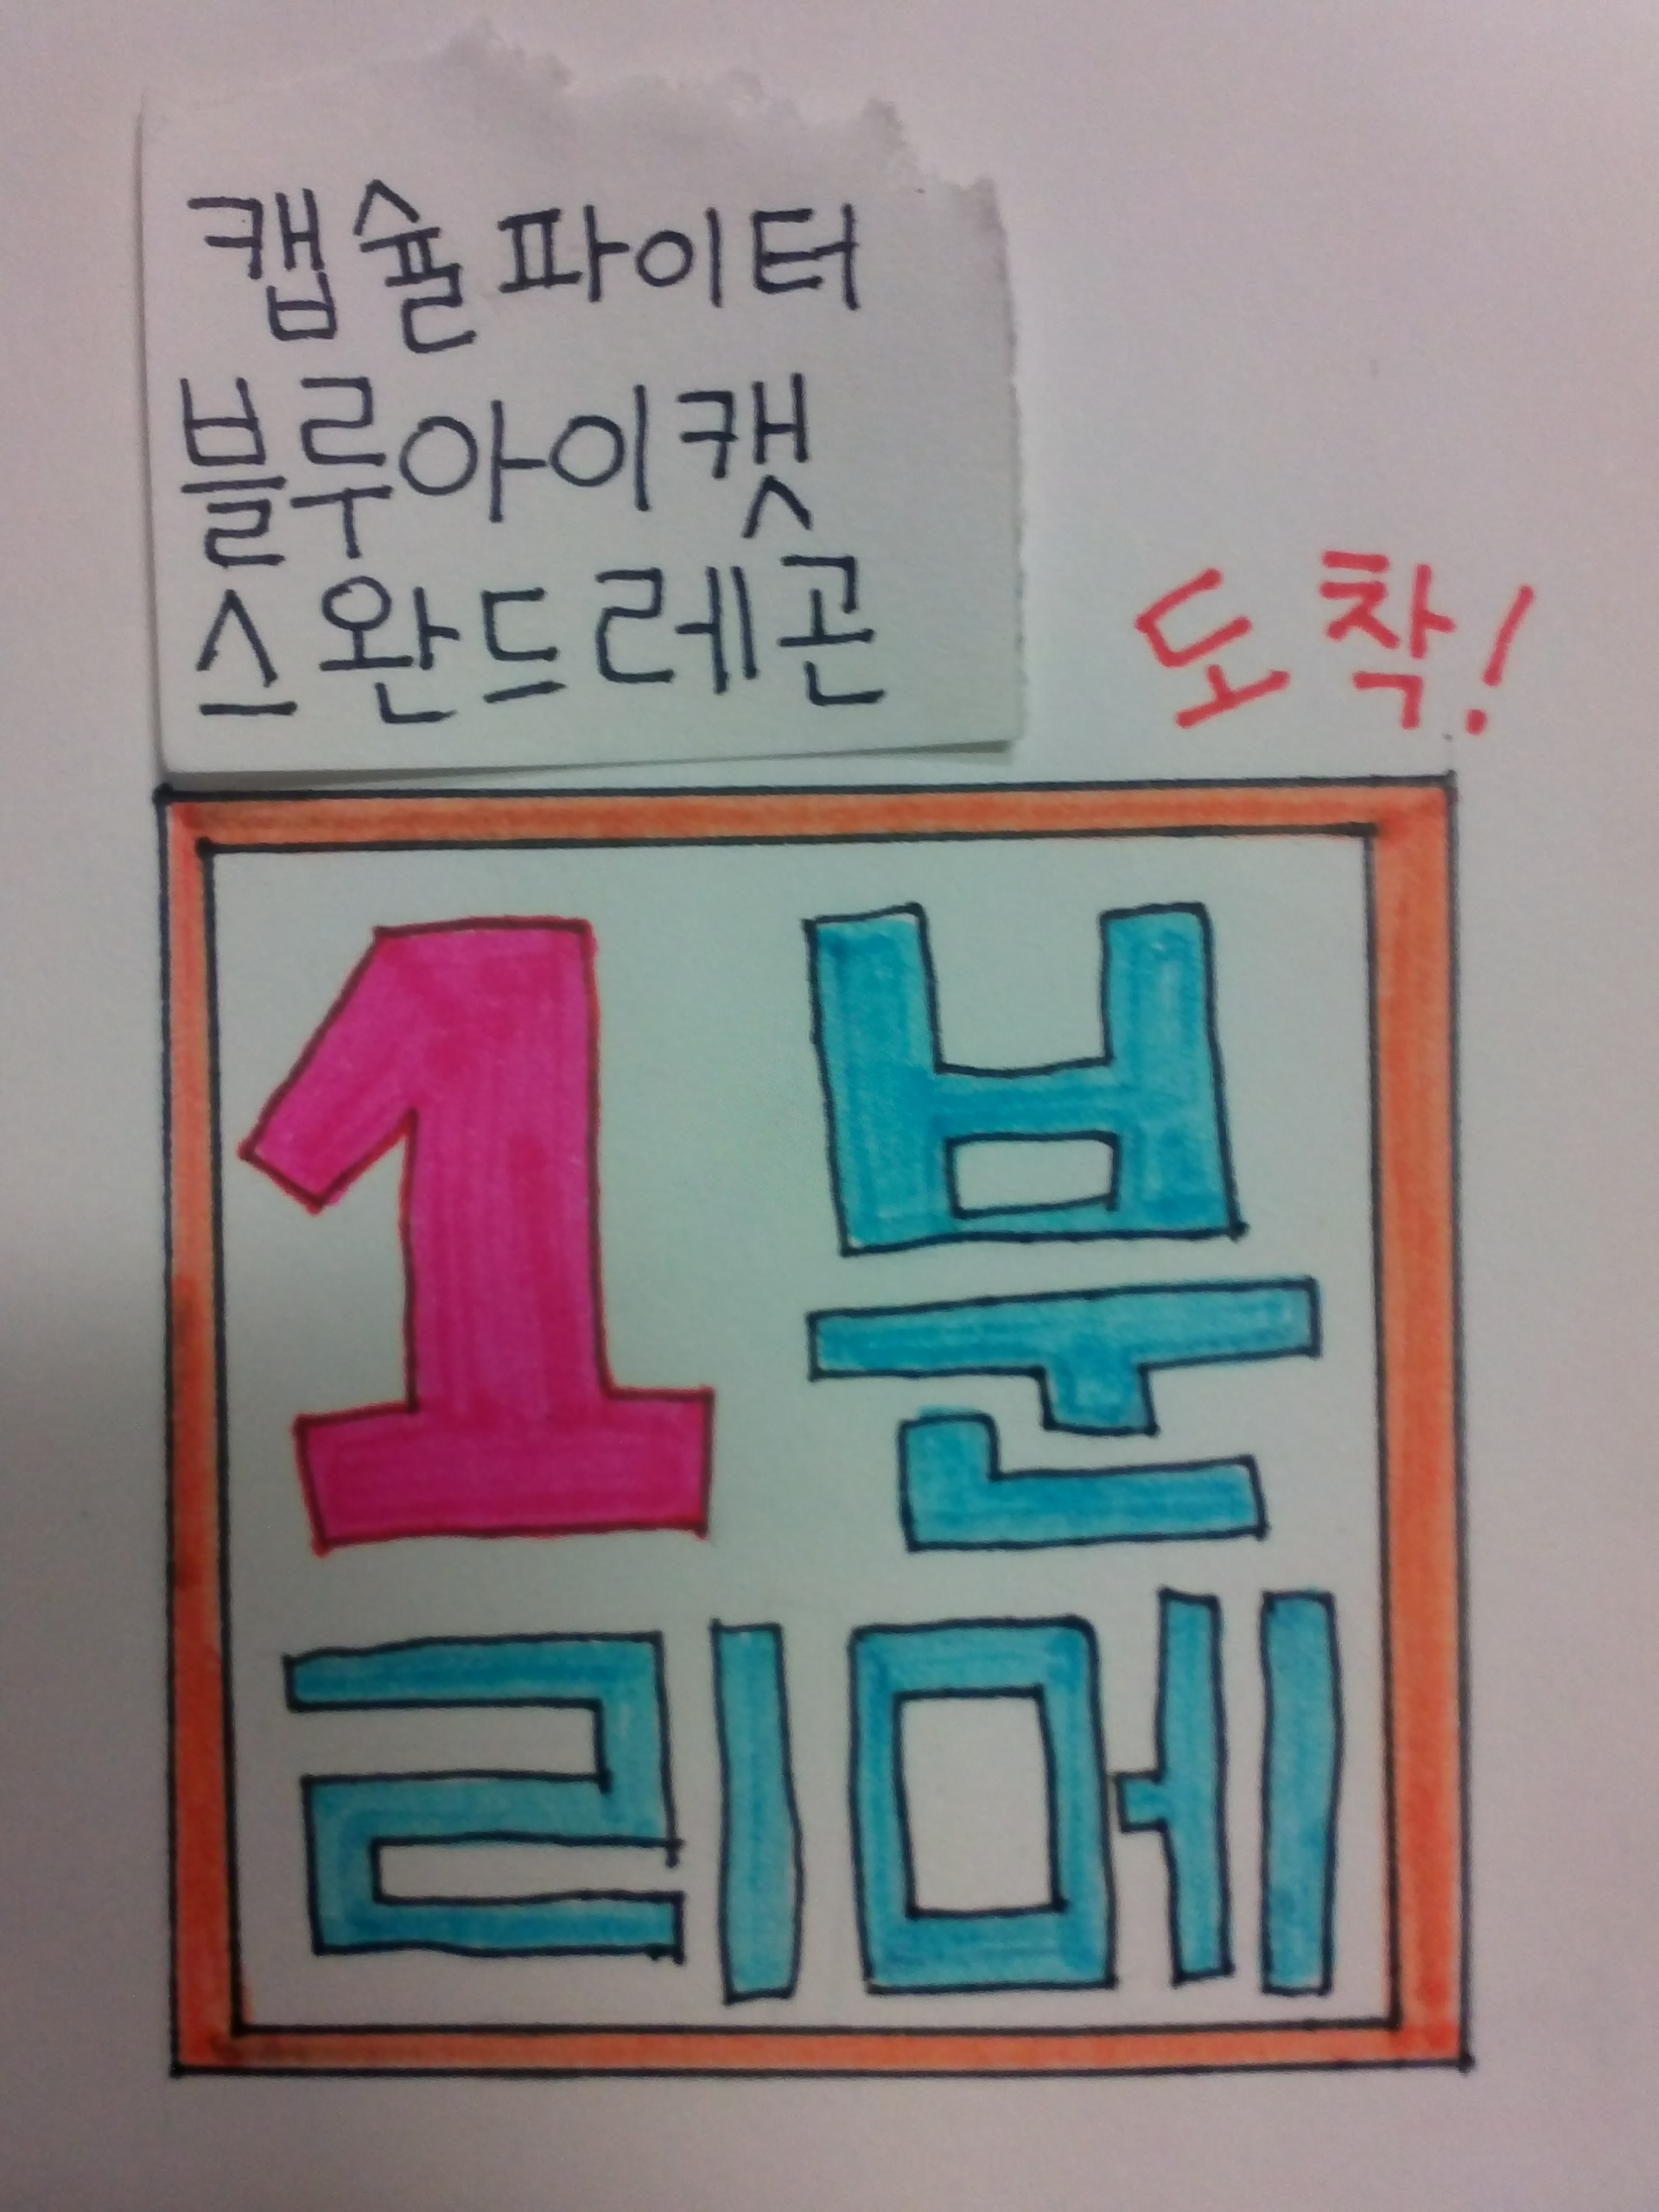 캡슐파이터
블루아이캣
스완드레곤
도착!
1분
리메